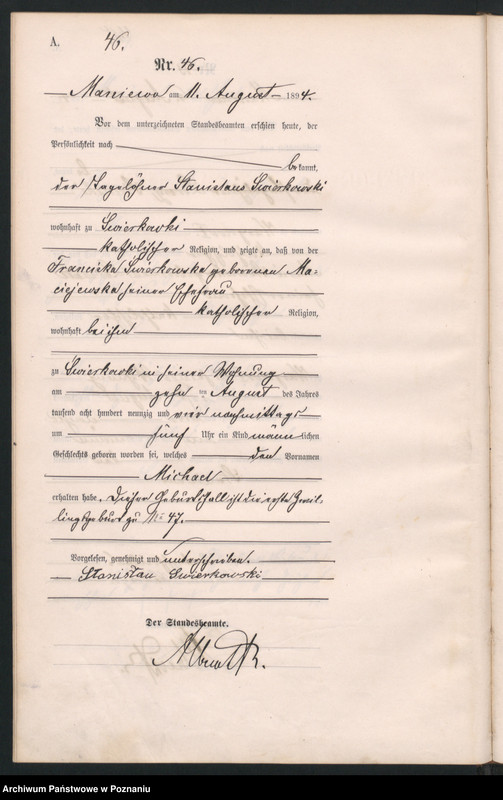 A. 46.
Nr. 46.
Maniewo am 11. August 1894.
Vor dem unterzeichneten Standesbeamten erschien heute, der
Persönlichkeit nach
bekannt,
der Tagelöhner Stanislaus Swierkowski
wohnhaft zu Swierkowki
katholischer Religion, und zeigte an, daß von der
Franciska Swierkowska geborenen Ma-
ciejewska seiner Ehefrau
katholischer Religion,
wohnhaft bei ihm
zu Swierkowki in seiner Wohnung
am zehnten August des Jahres
tausend acht hundert neunzig und vier nachmittags
um fünf Uhr ein Kind männlichen
Geschlechts geboren worden sei, welches den Vornamen
Michael
erhalten habe. Dieser Geburtsfall ist die erste Zwil-
lingsgeburt zu No 47.
Vorgelesen, genehmigt und unterschrieben.
Stanisław Swierkowski
Der Standesbeamte.
Archiwum Państwowe w Poznaniu